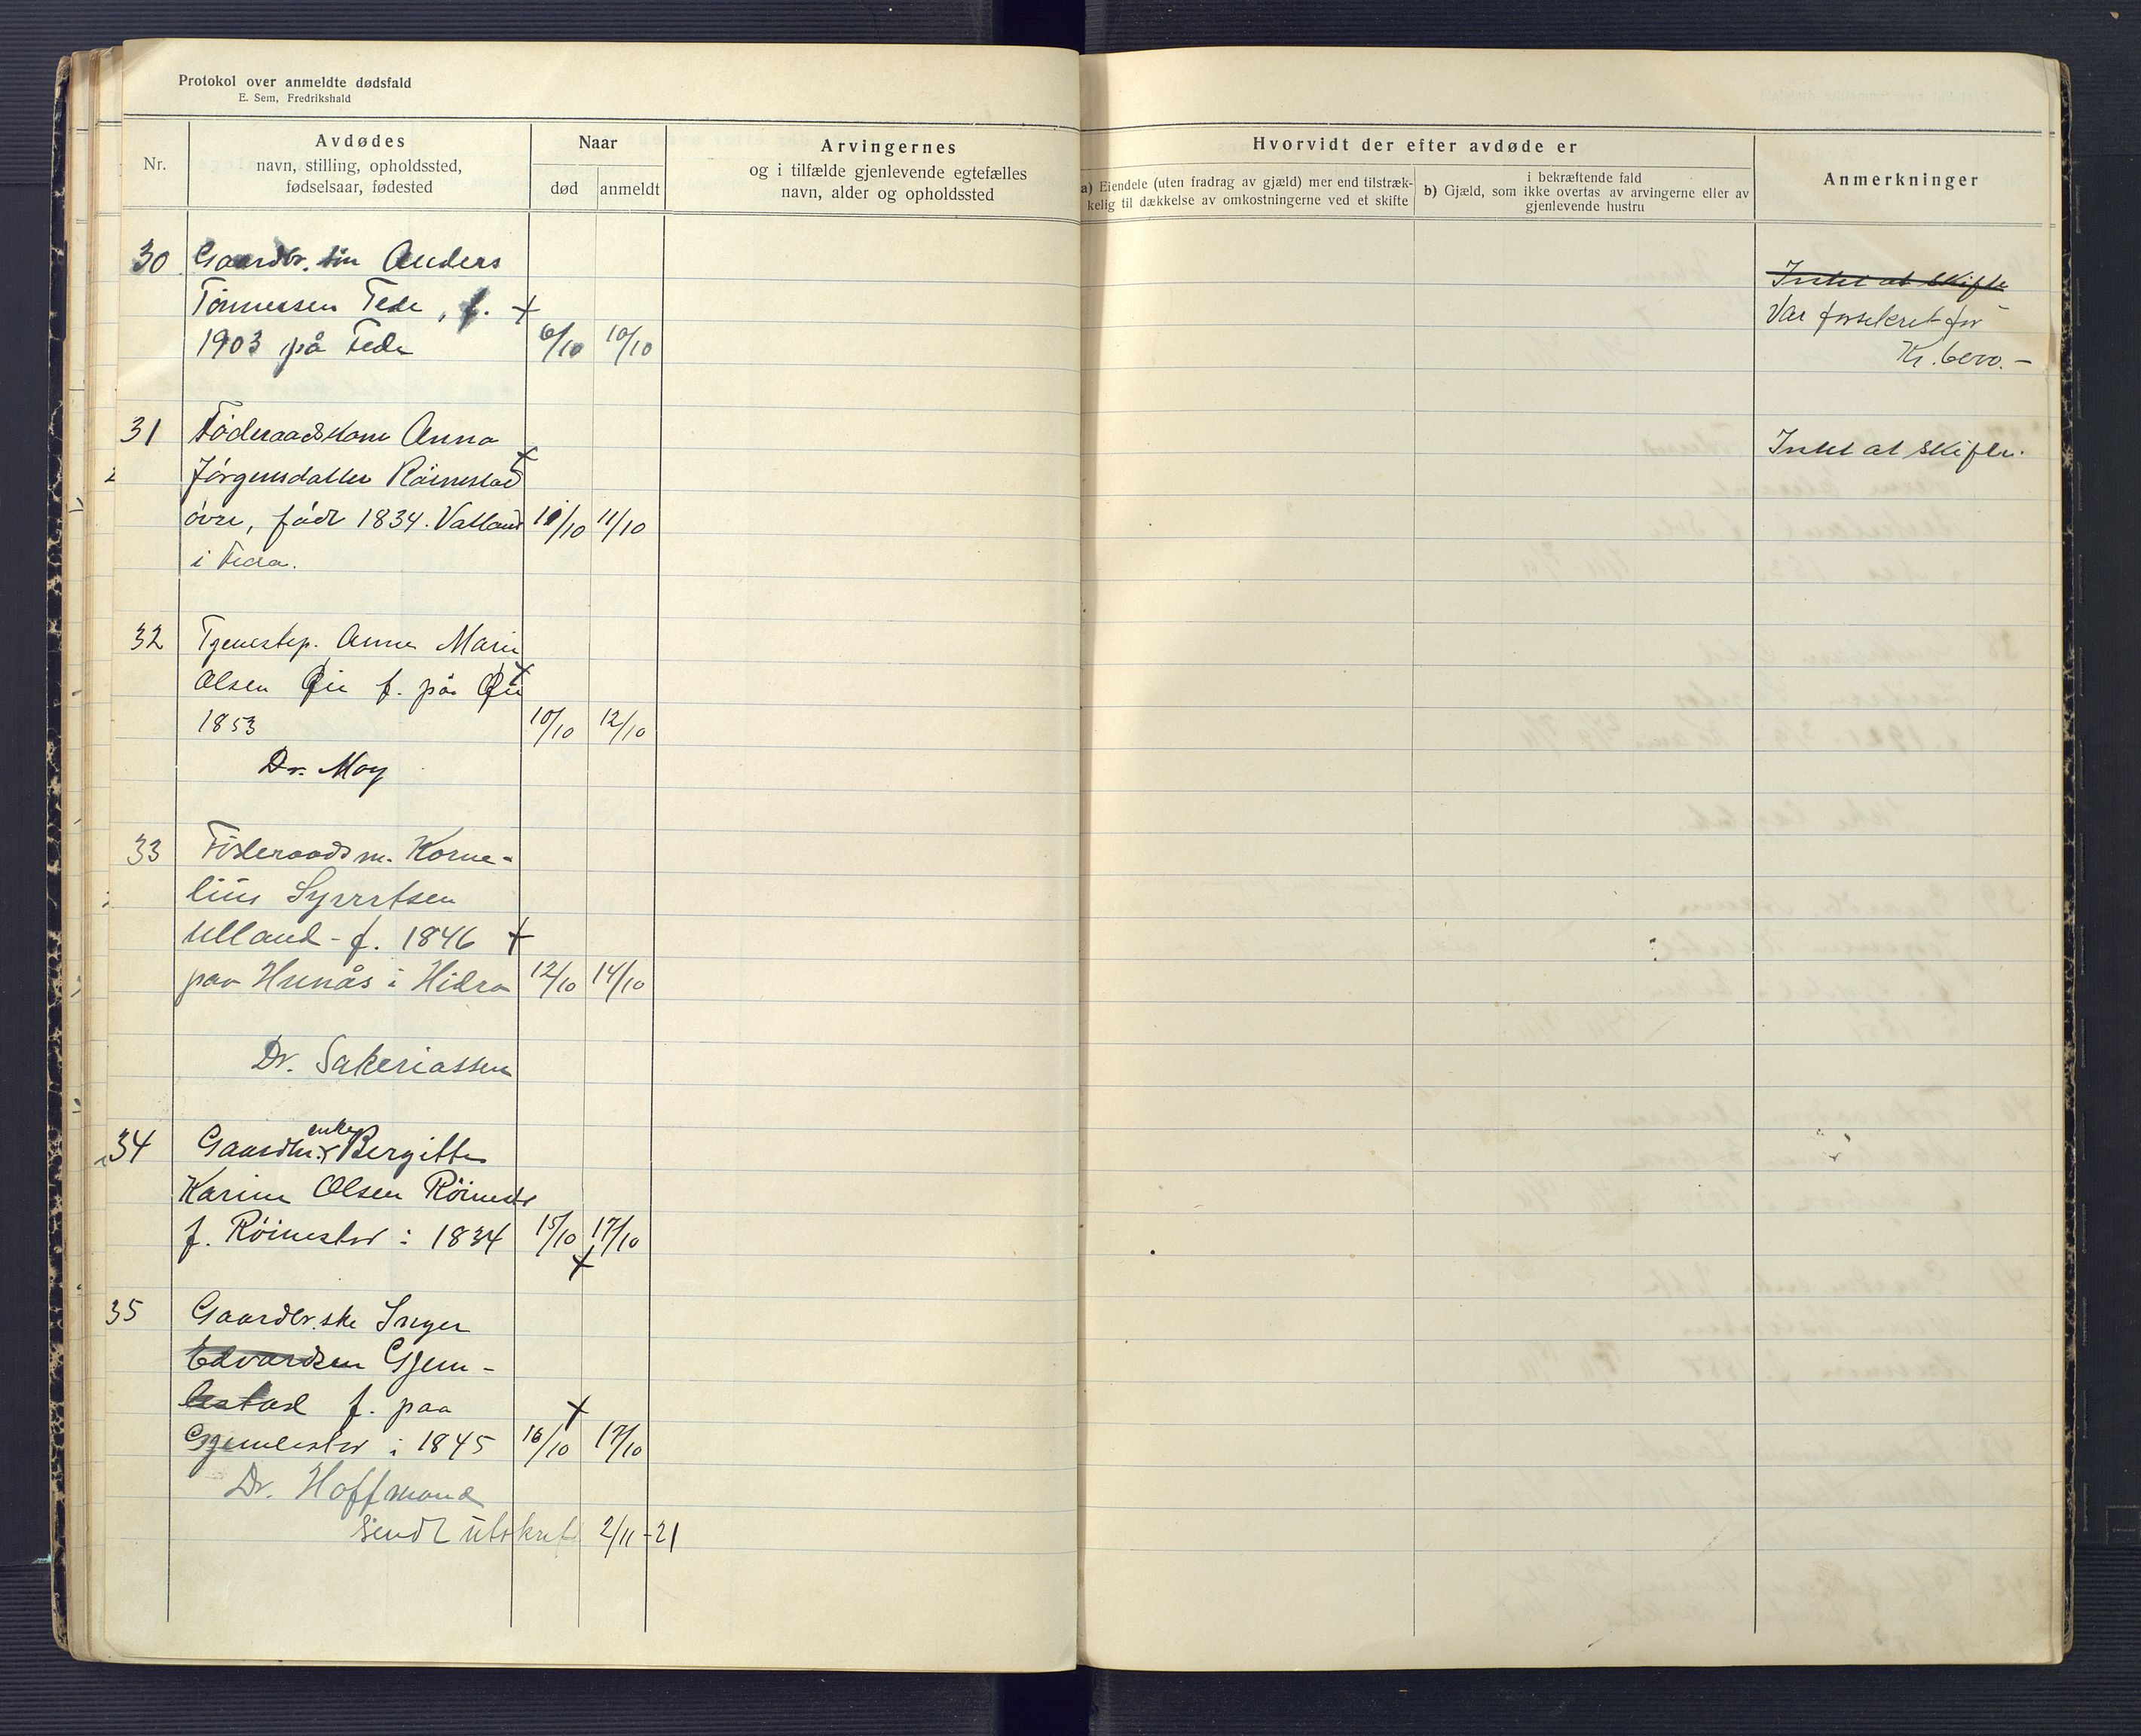 Protokol over anmeldte dødsfald
E. Sem, Fredrikshald
Nr.
Avdødes
navn, stilling, opholdssted,
fødselsaar, fødested
Naar
død
anmeldt
Arvingernes
og i tilfælde gjenlevende egtefælles
navn, alder og opholdssted
Hvorvidt der efter avdøde er
a) Eiendele (uten fradrag av gjæld) mer end tilstræk-
kelig til dækkelse av omkostningerne ved et skifte
i bekræftende fald
b) Gjæld, som ikke overtas av arvingerne eller av
gjenlevende hustru
Anmerkninger
30 Gaardbr. søn Anders
Tønnessen Fede, f. +
1903 på Fede 6/10 10/10
Intet at skifte
Var forsikret for
Kr. 6000.-
31 Føderaadskone Anna
Jørgensdatter Röinestad +
övre, född 1834. Vatland 10/10 11/10
i Feda.
Intet at skifte.
32 Tjenestep. Anne Marie
Olsen Øie f. på Øie +
1853 10/10 12/10
Dr. Moy
33 Föderaadsm. Korne-
lius Syvertsen
Ulland - f. 1846 +
paa Hunås i Hidra 12/10 14/10
Dr. Sakeriassen
34 Gaardm. enke Bergitte
Karine Olsen Röinestd
f. Röinestad i 1834 15/10 17/10
+
35 Gaardbr.ske Inger
Edvardsen Gjem-
lestad f. paa +
Gjemlestad i 1845 16/10 17/10
Dr. Hoffmand
Sendt utskrift 2/11-21